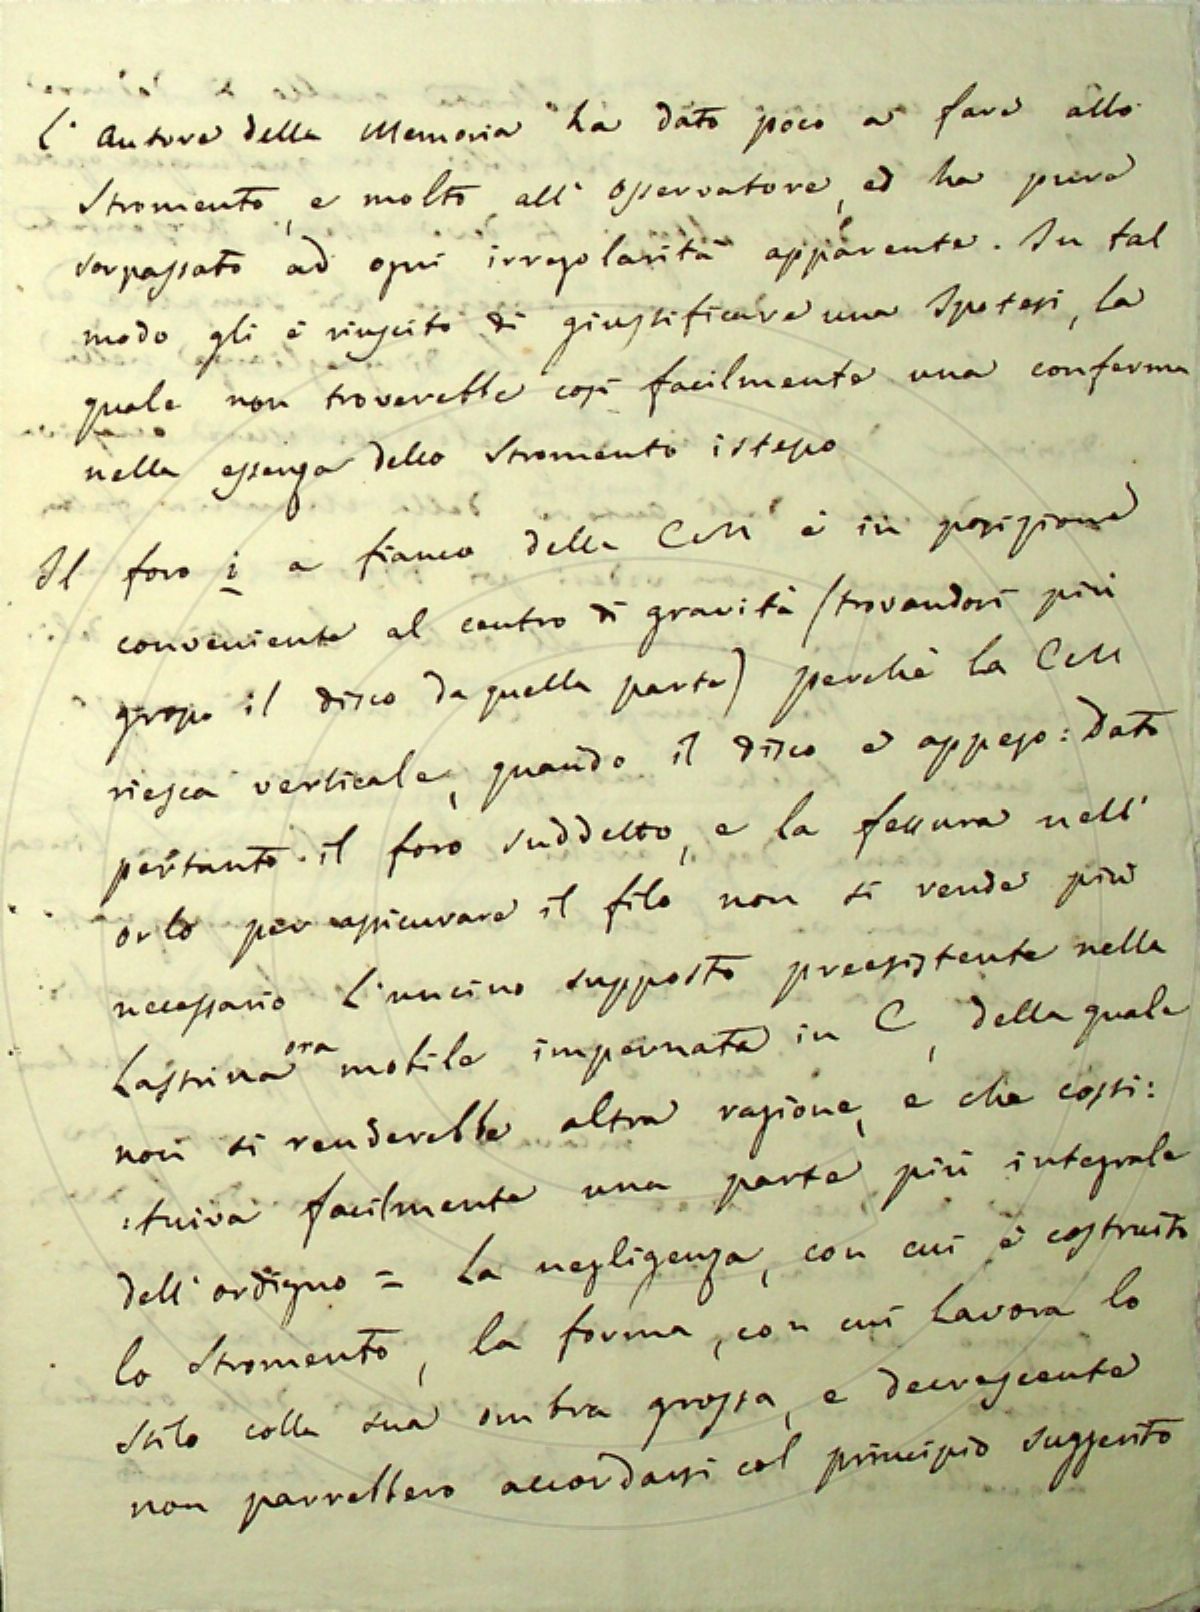 L'Autore della Memoria ha dato poco a fare allo
Stromento, e molto all'Osservatore, ed ha pure
sorpassato ad ogni irregolarità apparente. In tal
modo gli è riuscito di giustificare una Ipotesi, la
quale non troverebbe così facilmente una conferma
nella essenza dello Stromento istesso
Il foro i a fianco della CM è in posizione
conveniente al centro di gravità (trovandosi più
grosso il disco da quella parte) perchè la CM
riesca verticale, quando il disco è appeso: Dato
pertanto il foro suddetto, e la fessura nell'
orlo per assicurare il filo non si rende più
necessario l'uncino supposto preesistente nella
Lastrina ora mobile impernata in C, della quale
non si renderebbe altra ragione, e che costi:
:tuiva facilmente una parte più integrale
dell'ordigno = La negligenza, con cui è costruito
lo Stromento, la forma, con cui lavora lo
Stilo colla sua ombra grossa, e decrescente
non parrebbero accordarsi col principio suggerito